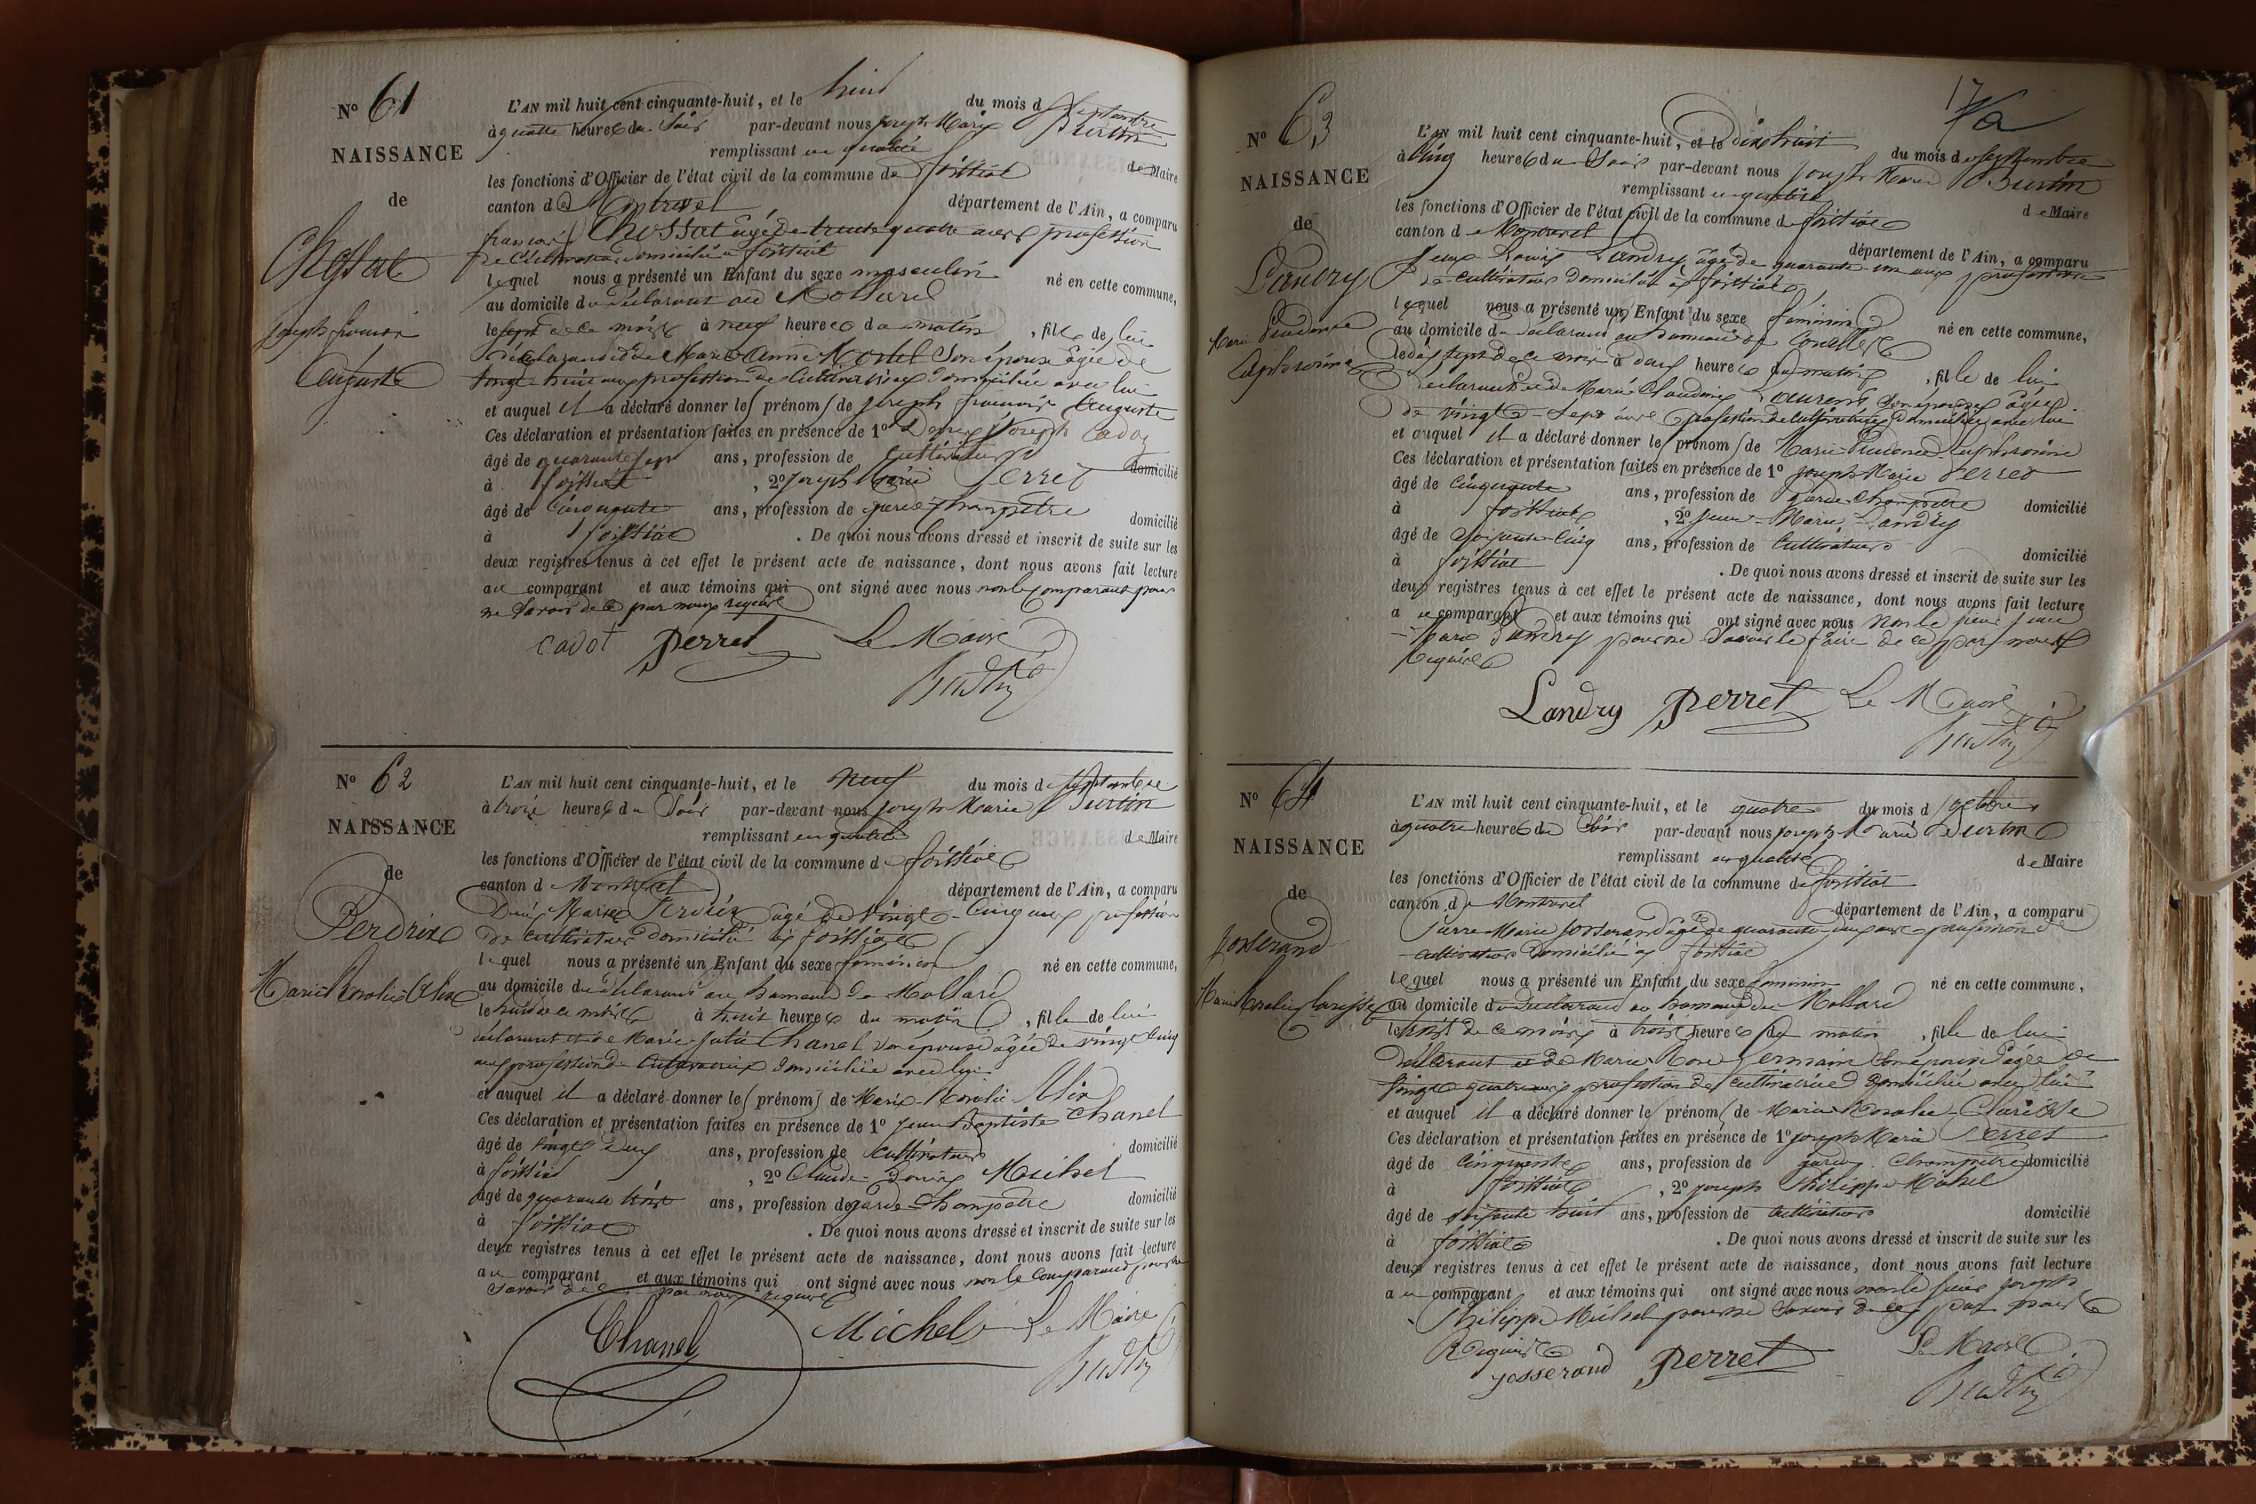 N° 61
NAISSANCE
de
Chossat
Joseph françois
Auguste
L'AN mil huit cent cinquante-huit, et le huit du mois de Septembre
à quatre heures du Soir par-devant nous joseph Marie Burtin
remplissant en qualité de Maire
les fonctions d'Officier de l'état civil de la commune de foissiat
canton de Montrevel département de l'Ain, a comparu
françois Chossat âgé de trente quatre ans profession
de Cultivateur domicilié à foissiat
lequel nous a présenté un Enfant du sexe masculin né en cette commune,
au domicile du déclarant au Mollard
le sept de ce mois à neuf heures du matin, fils de lui
déclarant et de Marie Anne Morel Son épouse âgée de
vingt huit ans profession de Cultivatrice domiciliée avec lui
et auquel il a déclaré donner les prénoms de joseph françois Auguste
Ces déclaration et présentation faites en présence de 1° Joseph Cadot
âgé de quarante sept ans, profession de cultivateur domicilié
à foissiat, 2° joseph Marie Perret
âgé de Cinquante ans, profession de garde champêtre domicilié
à foissiat. De quoi nous avons dressé et inscrit de suite sur les
deux registres tenus à cet effet le présent acte de naissance, dont nous avons fait lecture
au comparant et aux témoins qui ont signé avec nous non le comparant pour
ne Savoir de ce par nous requis
cadot Perret Le Maire
Burtin
N° 62
NAISSANCE
de
Perdrix
Marie Rosalie Alix
L'AN mil huit cent cinquante-huit, et le neuf du mois de Septembre
à trois heures du Soir par-devant nous joseph Marie Burtin
remplissant en qualité de Maire
les fonctions d'Officier de l'état civil de la commune de foissiat
canton de Montrevel département de l'Ain, a comparu
Marie Perdrix âgé de vingt-Cinq ans profession
de cultivateur domicilié à foissiat
lequel nous a présenté un Enfant du sexe féminin né en cette commune,
au domicile du déclarant au hameau du Mollard
le huit de ce mois à huit heures du matin, fille de lui
déclarant et de Marie Chanel son épouse âgée de vingt Cinq
ans profession de Cultivatrice domiciliée avec lui
et auquel il a déclaré donner les prénoms de Marie-Rosalie Alix
Ces déclaration et présentation faites en présence de 1° Jean Baptiste Chanel
âgé de vingt Deux ans, profession de Cultivateur domicilié
à foissiat, 2° Claude-Louis Michel
âgé de quarante trois ans, profession de garde-champêtre domicilié
à foissiat. De quoi nous avons dressé et inscrit de suite sur les
deux registres tenus à cet effet le présent acte de naissance, dont nous avons fait lecture
au comparant et aux témoins qui ont signé avec nous non le Comparant pour ne
Savoir de ce par nous requis
Chanel Michel Le Maire
Burtin
17
N° 63
NAISSANCE
de
Landry
Marie Prudence
Euphrosine
L'AN mil huit cent cinquante-huit, et le dix huit du mois de Septembre
à Cinq heures du Soir par-devant nous Joseph Marie Burtin
remplissant en qualité de Maire
les fonctions d'Officier de l'état civil de la commune de foissiat
canton de Montrevel département de l'Ain, a comparu
Jean Louis Landry âgé de quarante-un ans profession
de cultivateur domicilié à foissiat
lequel nous a présenté un Enfant du sexe féminin né en cette commune,
au domicile du déclarant au hameau de
le dix sept de ce mois à deux heures du matin, fille de lui
déclarant et de Marie Claudine Laurent Son épouse âgée
de vingt-Sept ans profession de Cultivatrice domiciliée avec lui
et auquel il a déclaré donner les prénoms de Marie Prudence Euphrosine
Ces déclaration et présentation faites en présence de 1° joseph Marie Perret
âgé de Cinquante ans, profession de garde champêtre domicilié
à foissiat, 2° Jean-Marie Landry
âgé de Soixante-Cinq ans, profession de Cultivateur domicilié
à foissiat. De quoi nous avons dressé et inscrit de suite sur les
deux registres tenus à cet effet le présent acte de naissance, dont nous avons fait lecture
au comparant et aux témoins qui ont signé avec nous Non le sieur jean
-Marie Landry pour ne Savoir le faire de ce par nous
Requis
Landry Perret Le Maire
Burtin
N° 64
NAISSANCE
de
Josserand
Marie Rosalie Clarisse
L'AN mil huit cent cinquante-huit, et le quatre du mois d'octobre
à quatre heures du Soir par-devant nous joseph Marie Burtin
remplissant en qualité de Maire
les fonctions d'Officier de l'état civil de la commune de foissiat
canton de Montrevel département de l'Ain, a comparu
Pierre-Marie Josserand âgé de quarante ans profession de
cultivateur Domicilié à foissiat
lequel nous a présenté un Enfant du sexe féminin né en cette commune,
au domicile du déclarant au hameau du Mollard
le trois de ce mois à trois heures du matin, fille de lui
déclarant et de Marie-Rose Germain Son épouse âgée de
vingt quatre ans profession de cultivatrice domiciliée avec lui
et auquel il a déclaré donner les prénoms de Marie-Rosalie-Clarisse
Ces déclaration et présentation faites en présence de 1° joseph Marie Perret
âgé de Cinquante ans, profession de garde champêtre domicilié
à foissiat, 2° joseph Philippe Michel
âgé de soixante huit ans, profession de cultivateur domicilié
à foissiat. De quoi nous avons dressé et inscrit de suite sur les
deux registres tenus à cet effet le présent acte de naissance, dont nous avons fait lecture
au comparant et aux témoins qui ont signé avec nous non le sieur joseph
Philippe Michel pour ne Savoir de ce par nous
Requis
josserand Perret Le Maire
Burtin